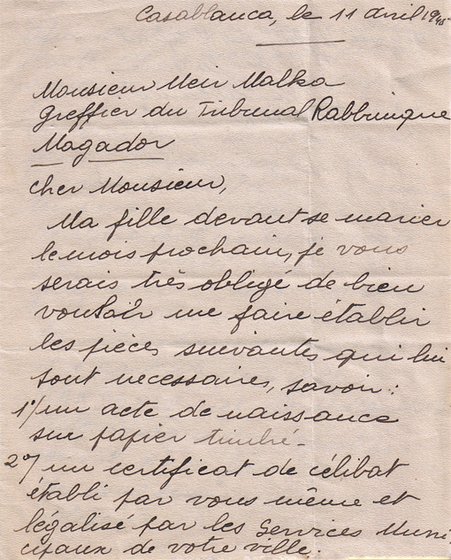 Casablanca, le 11 avril 1945
Monsieur Meir Malka
greffier du Tribunal Rabbinique
Magador
cher Monsieur,
Ma fille devant se marier
le mois prochain, je vous
serais très obligé de bien
vouloir me faire établir
les pièces suivantes qui lui
sont necessaires, savoir :
1°/ un acte de naissance
sur papier timbré -
2°/ un certificat de célibat
établi par vous même et
légalisé par les Services Muni
cipaux de votre ville.